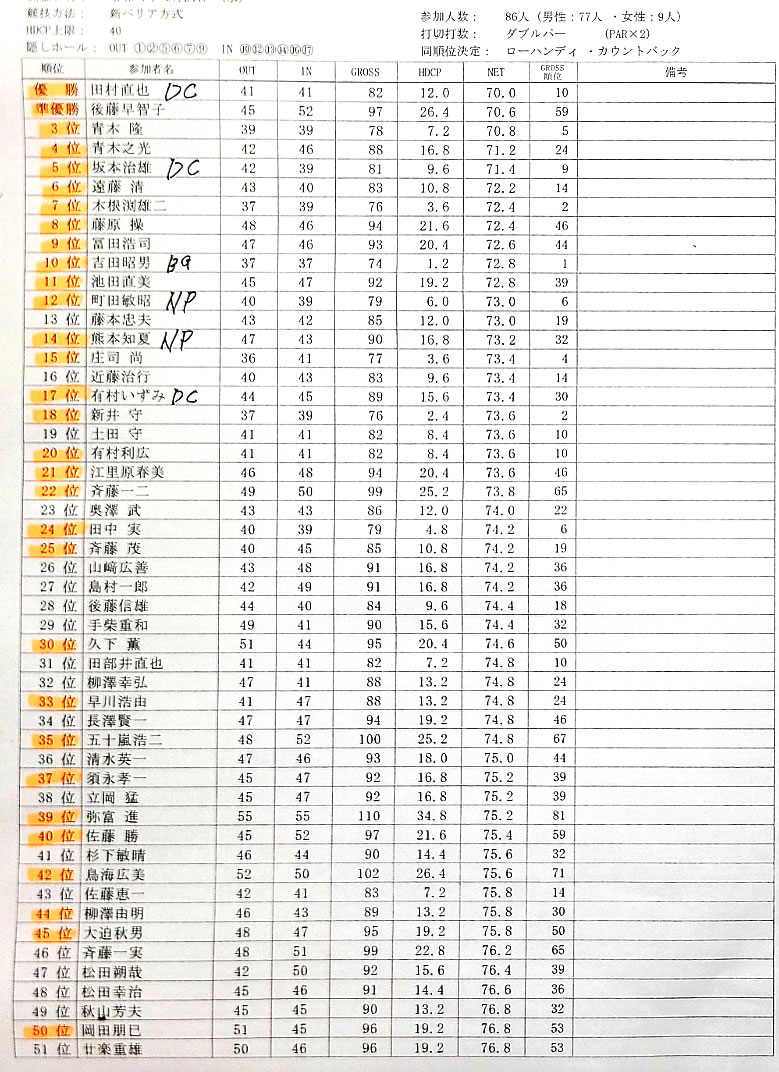 競技方法： 新ペリア方式
HDCP上限： 40
隠しホール： OUT ①②⑤⑥⑦⑨ IN ⑩⑫⑬⑭⑯⑰
参加人数： 86人（男性：77人 ・女性：9人）
打切打数： ダブルパー (PAR×2)
同順位決定： ローハンディ ・カウントバック
順位 参加者名 OUT IN GROSS HDCP NET GROSS順位 備考
優 勝 田村直也 DC 41 41 82 12.0 70.0 10
準優勝 後藤早智子 45 52 97 26.4 70.6 59
3 位 青木 隆 39 39 78 7.2 70.8 5
4 位 青木之光 42 46 88 16.8 71.2 24
5 位 坂本治雄 DC 42 39 81 9.6 71.4 9
6 位 遠藤 清 43 40 83 10.8 72.2 14
7 位 木根渕雄二 37 39 76 3.6 72.4 2
8 位 藤原 操 48 46 94 21.6 72.4 46
9 位 冨田浩司 47 46 93 20.4 72.6 44
10 位 吉田昭男 BG 37 37 74 1.2 72.8 1
11 位 池田直美 45 47 92 19.2 72.8 39
12 位 町田敏昭 NP 40 39 79 6.0 73.0 6
13 位 藤本忠夫 43 42 85 12.0 73.0 19
14 位 熊本知夏 NP 47 43 90 16.8 73.2 32
15 位 庄司 尚 36 41 77 3.6 73.4 4
16 位 近藤治行 40 43 83 9.6 73.4 14
17 位 有村いずみ DC 44 45 89 15.6 73.4 30
18 位 新井 守 37 39 76 2.4 73.6 2
19 位 土田 守 41 41 82 8.4 73.6 10
20 位 有村利広 41 41 82 8.4 73.6 10
21 位 江里原春美 46 48 94 20.4 73.6 46
22 位 斉藤一二 49 50 99 25.2 73.8 65
23 位 奥澤 武 43 43 86 12.0 74.0 22
24 位 田中 実 40 39 79 4.8 74.2 6
25 位 斉藤 茂 40 45 85 10.8 74.2 19
26 位 山﨑広善 43 48 91 16.8 74.2 36
27 位 島村一郎 42 49 91 16.8 74.2 36
28 位 後藤信雄 44 40 84 9.6 74.4 18
29 位 手柴重和 49 41 90 15.6 74.4 32
30 位 久下 薫 51 44 95 20.4 74.6 50
31 位 田部井直也 41 41 82 7.2 74.8 10
32 位 柳澤幸弘 47 41 88 13.2 74.8 24
33 位 早川浩由 41 47 88 13.2 74.8 24
34 位 長澤賢一 47 47 94 19.2 74.8 46
35 位 五十嵐浩二 48 52 100 25.2 74.8 67
36 位 清水英一 47 46 93 18.0 75.0 44
37 位 須永孝一 45 47 92 16.8 75.2 39
38 位 立岡 猛 45 47 92 16.8 75.2 39
39 位 弥富 進 55 55 110 34.8 75.2 81
40 位 佐藤 勝 45 52 97 21.6 75.4 59
41 位 杉下敏晴 46 44 90 14.4 75.6 32
42 位 鳥海広美 52 50 102 26.4 75.6 71
43 位 佐藤恵一 42 41 83 7.2 75.8 14
44 位 柳澤由明 46 43 89 13.2 75.8 30
45 位 大迫秋男 48 47 95 19.2 75.8 50
46 位 斉藤一実 48 51 99 22.8 76.2 65
47 位 松田朔哉 42 50 92 15.6 76.4 39
48 位 松田幸治 45 46 91 14.4 76.6 36
49 位 秋山芳夫 45 45 90 13.2 76.8 32
50 位 岡田朋巳 51 45 96 19.2 76.8 53
51 位 廿楽重雄 50 46 96 19.2 76.8 53